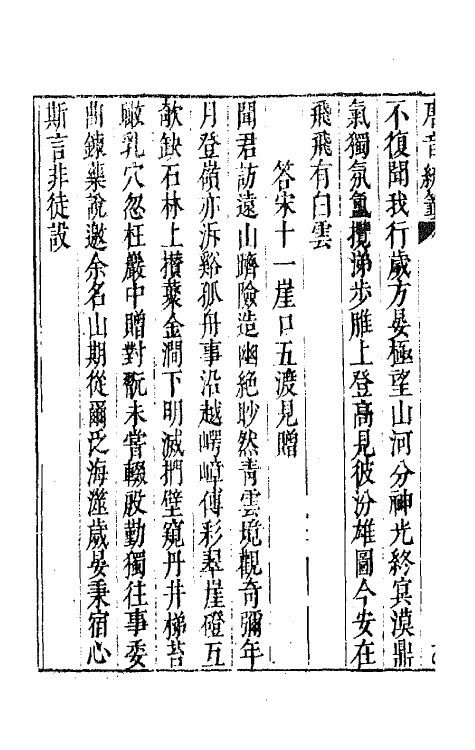 唐音統籤
不復聞我行歲方晏極望山河分神光終冥漠鼎
氣獨氛氳攬涕步雎上登高見彼汾雄圖今安在
飛飛有白雲
答宋十一崖口五渡見贈
聞君訪遠山躋險造幽絕眇然青雲境觀奇彌年
月登嶺亦泝谿孤舟事沿越崿嶂傳彩翠崖磴互
欹缺石林上攢叢金澗下明滅捫壁窺丹井梯苔
瞰乳穴忽枉巖中贈對翫未嘗輟殷勤獨往事委
曲鍊藥說邀余名山期從爾泛海澨歲晏秉宿心
斯言非徒設